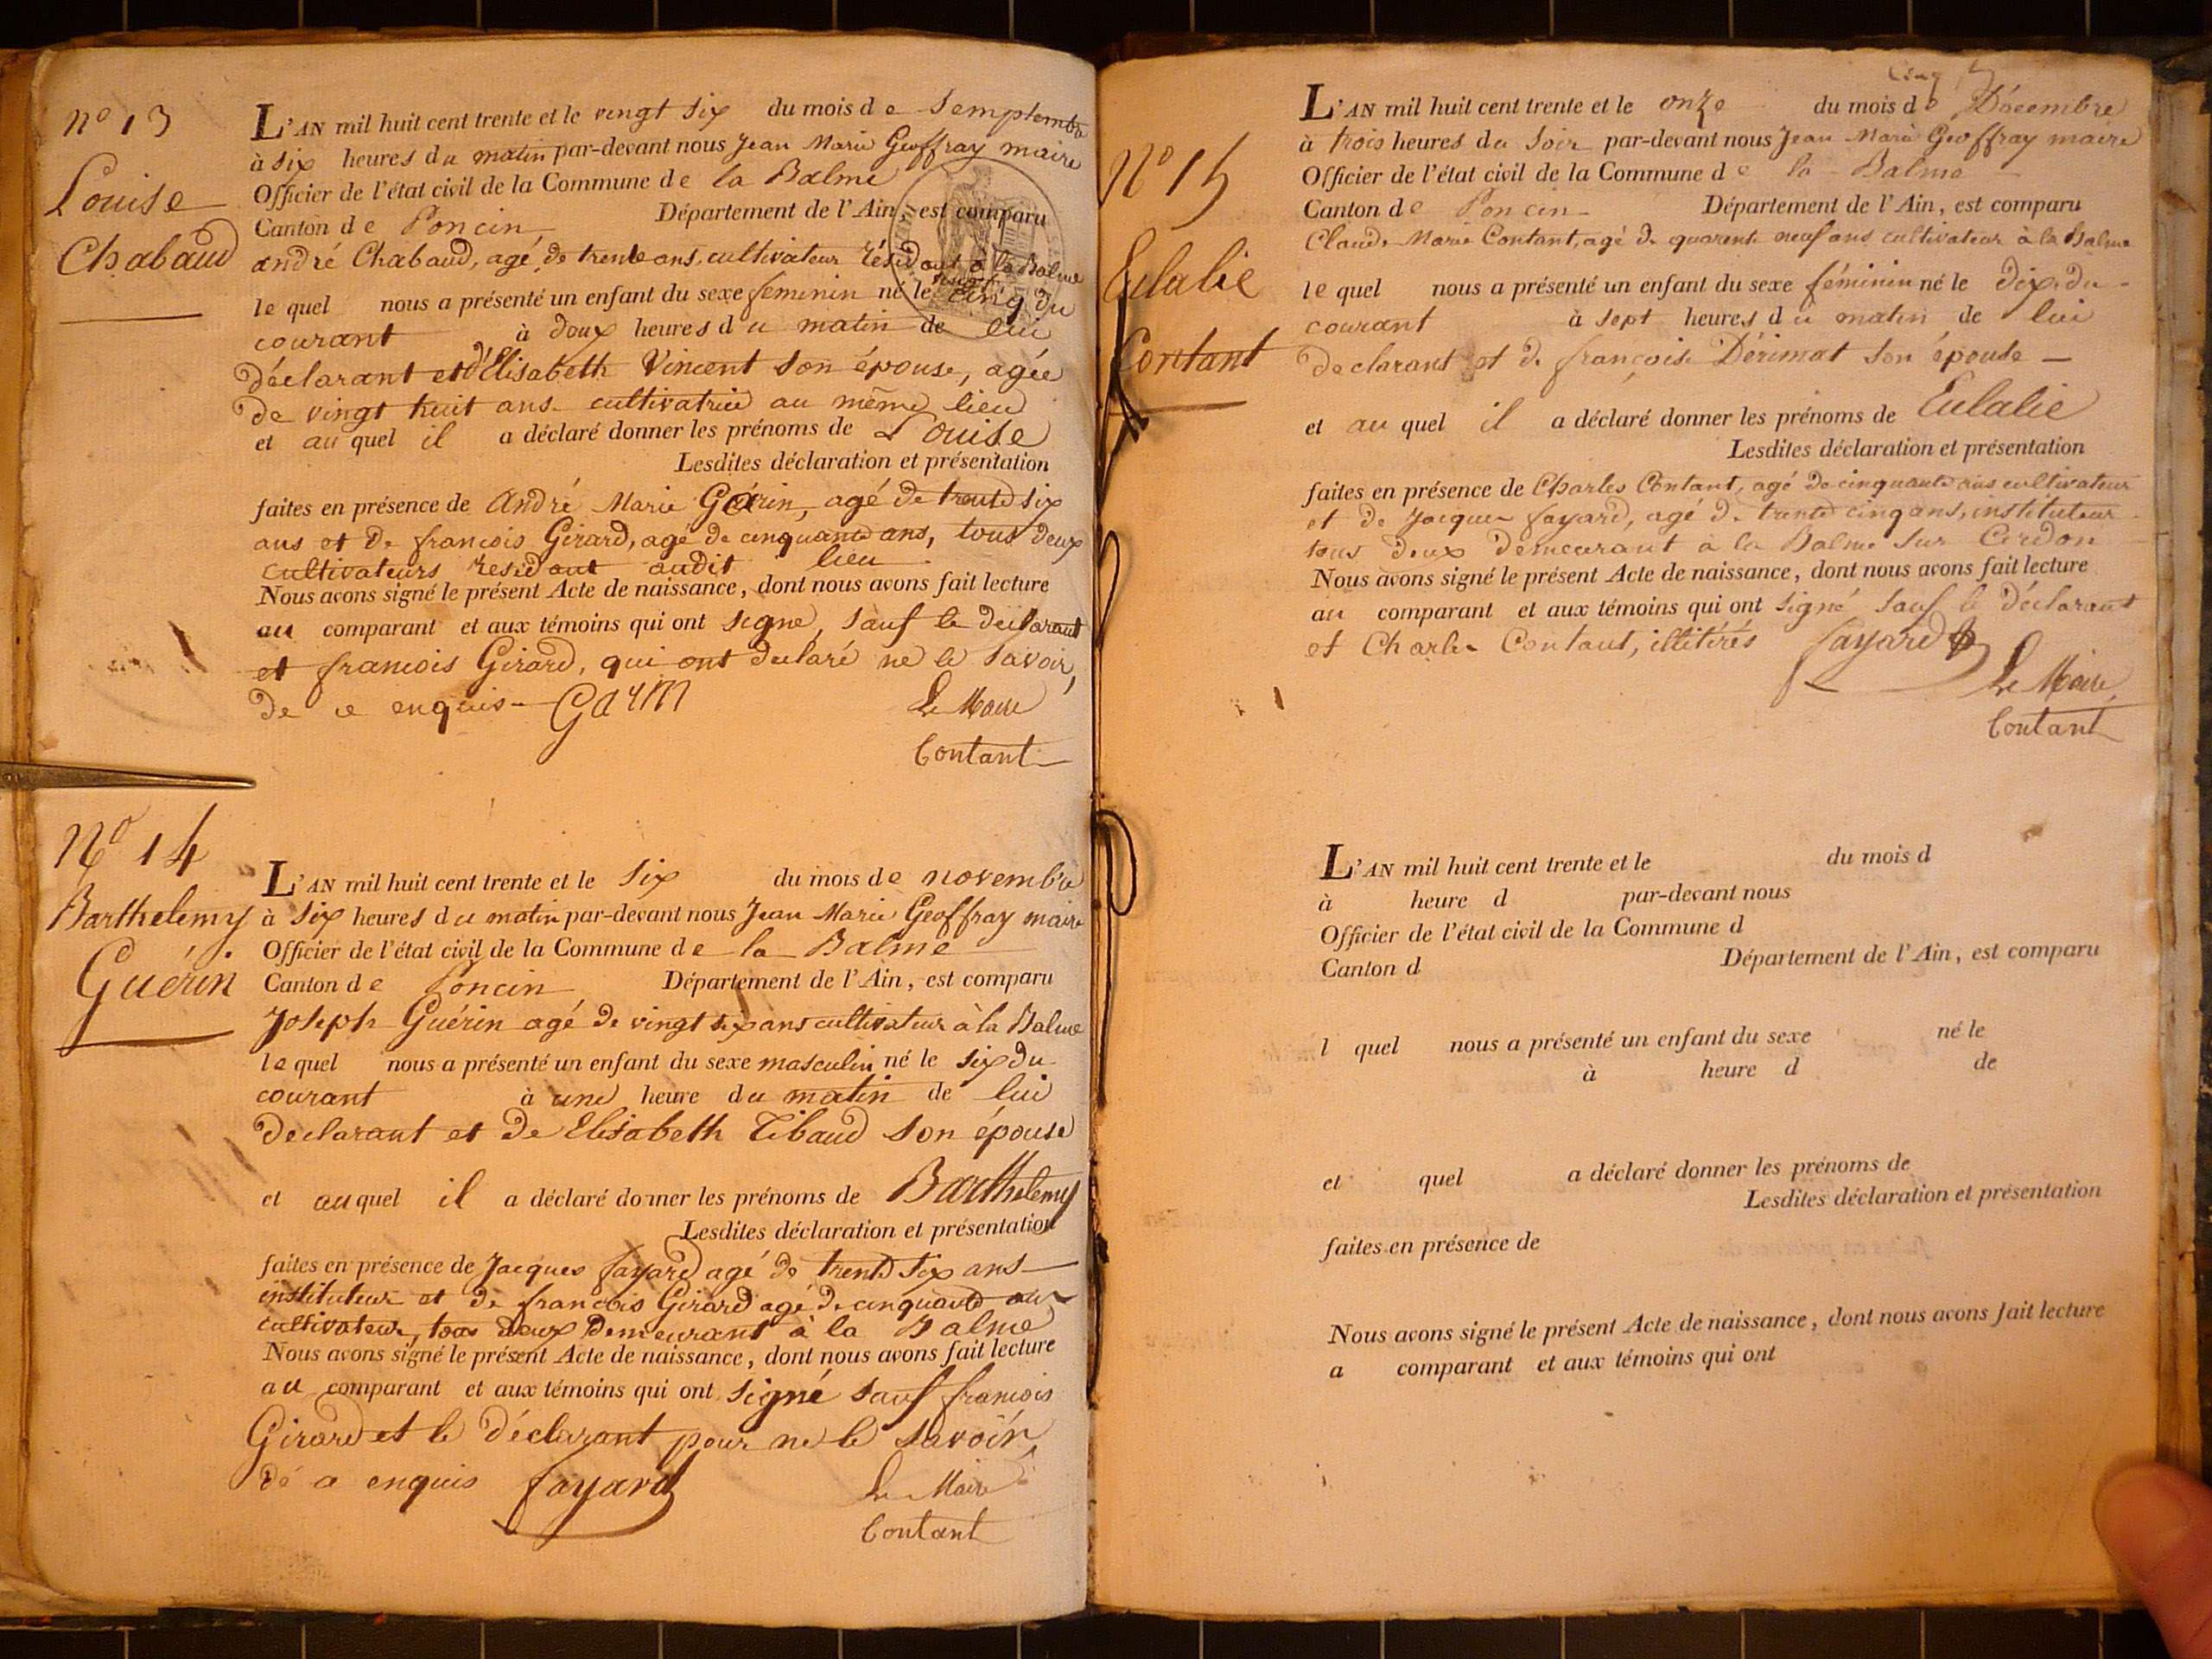 n° 13
Louise
Chabaud
L'AN mil huit cent trente et le vingt six du mois de Semptembre
à six heures du matin par-devant nous Jean Marie Geoffray maire
Officier de l'état civil de la Commune de la Balme
Canton de Poncin Département de l'Ain, est comparu
andré Chabaud, agé de trente ans, cultivateur résidant à la Balme
le quel nous a présenté un enfant du sexe feminin né le vingt cinq du
courant à deux heures du matin de lui
déclarant et d'Elisabeth Vincent son épouse, agée
de vingt huit ans cultivatrice au même lieu
et au quel il a déclaré donner les prénoms de Louise
Lesdites déclaration et présentation
faites en présence de André Marie Garin, agé de trente six
ans et de francois Girard, agé de cinquante ans, tous deux
cultivateurs résidant audit lieu
Nous avons signé le présent Acte de naissance, dont nous avons fait lecture
au comparant et aux témoins qui ont signé, sauf le déclarant
et francois Girard, qui ont declaré ne le savoir,
de ce enquis - Garin Le Maire
Contant
N° 14
Barthelemy
Guérin
L'AN mil huit cent trente et le six du mois de novembre
à six heures du matin par-devant nous Jean Marie Geoffray maire
Officier de l'état civil de la Commune de la Balme
Canton de Poncin Département de l'Ain, est comparu
Joseph Guérin agé de vingt six ans cultivateur à la Balme
le quel nous a présenté un enfant du sexe masculin né le six du
courant à une heure du matin de lui
declarant et de Elisabeth Tibaud son épouse
et au quel il a déclaré donner les prénoms de Barthelemy
Lesdites déclaration et présentation
faites en présence de Jacques fayard agé de trente six ans
instituteur et de francois Girard agé de cinquante ans
cultivateur, tous deux demeurant à la Balme
Nous avons signé le présent Acte de naissance, dont nous avons fait lecture
au comparant et aux témoins qui ont signé sauf francois
Girard et le déclarant pour ne le savoir,
de a enquis fayard Le Maire
Contant
Cinq 5
N° 15
Eulalie
Contant
L'AN mil huit cent trente et le onze du mois de Décembre
à trois heures du soir par-devant nous Jean Marie Geoffray maire
Officier de l'état civil de la Commune de la Balme
Canton de Poncin Département de l'Ain, est comparu
Claude Marie Contant, agé de quarente neuf ans cultivateur à la Balme
le quel nous a présenté un enfant du sexe féminin né le dix du
courant à sept heures du matin de lui
declarant et de françoise Dérimat son épouse
et au quel il a déclaré donner les prénoms de Eulalie
Lesdites déclaration et présentation
faites en présence de Charles Contant, agé de cinquante ans cultivateur
et de Jacques fayard, agé de trente cinq ans, instituteur
tous deux demeurant à la Balme sur Cerdon
Nous avons signé le présent Acte de naissance, dont nous avons fait lecture
au comparant et aux témoins qui ont signé sauf le déclarant
et Charles Contant, illitérés fayard
Le Maire
Contant
L'AN mil huit cent trente et le du mois d
à heure d par-devant nous
Officier de l'état civil de la Commune d
Canton d Département de l'Ain, est comparu
l quel nous a présenté un enfant du sexe né le
à heure d de
et quel a déclaré donner les prénoms de
Lesdites déclaration et présentation
faites en présence de
Nous avons signé le présent Acte de naissance, dont nous avons fait lecture
a comparant et aux témoins qui ont